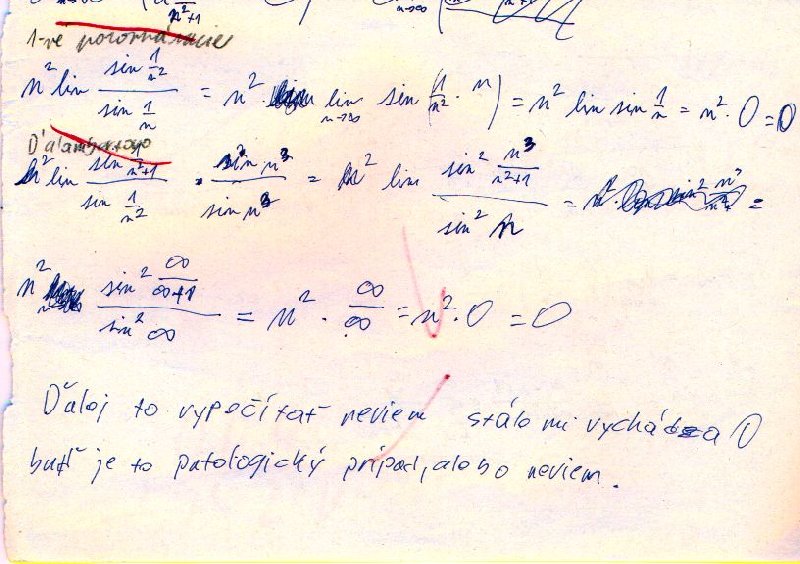 n²+1
1-vé porovnávacie
n² lim sin 1/n² / sin 1/n = n² lim n→∞ sin (1/n² · n) = n² lim sin 1/n = n² · 0 = 0
D'alambertovo
n² lim sin 1/n²+1 / sin 1/n² · sin² n³ / sin n³ = n² lim sin² n³/n²+1 / sin² n = =
n² sin² ∞/∞+1 / sin² ∞ = n² · ∞/∞ = n² · 0 = 0
Ďalej to vypečítať neviem stálo mi vychádza 0
buď je to patologický prípad, alebo neviem.